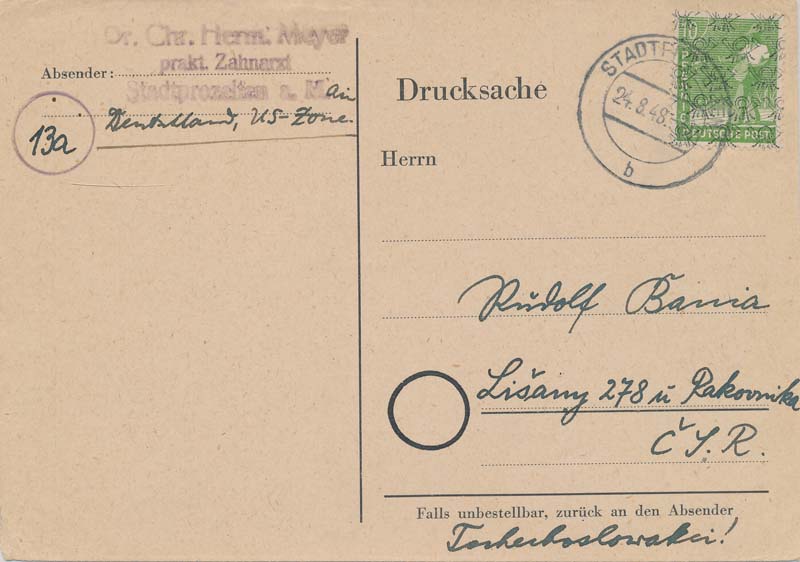 Dr. Chr. Herm. Meyer
prakt. Zahnarzt
Stadtprozelten a. M.
Absender:
Deutschland, US-Zone.
13a
Drucksache
Herrn
STADTPR
24.8.48
b
10
DEUTSCHE POST
Rudolf Bania
Lišany 278 u Rakovníka
Č.S.R.
Falls unbestellbar, zurück an den Absender
Tschechoslowakei!